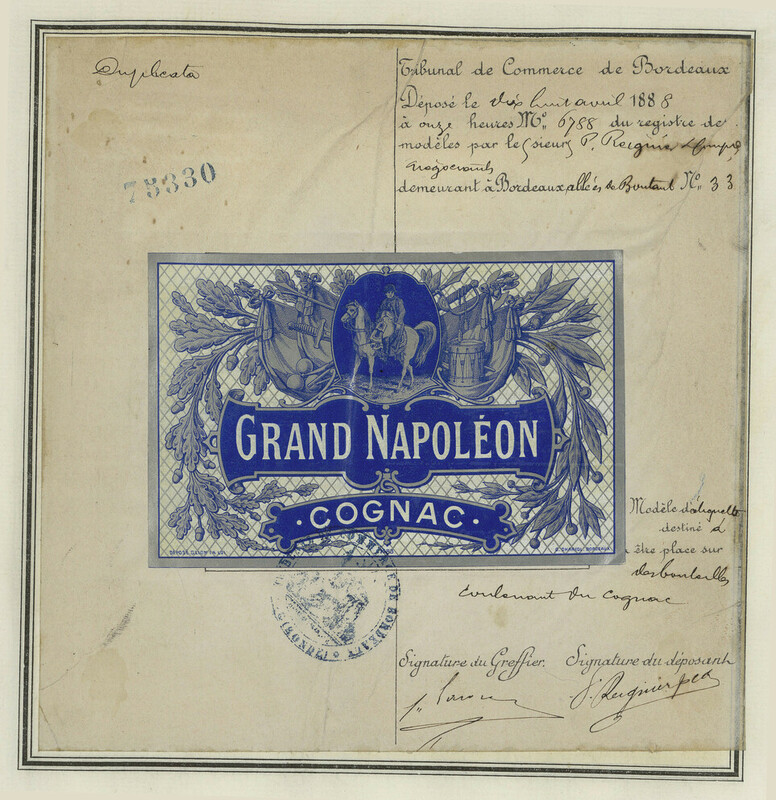 Duplicata
75330
Tribunal de Commerce de Bordeaux
Déposé le dix huit avril 1888
à onze heures No. 6788 du registre de
modèles par le (sieurs P. Reignier
négociants
demeurant à Bordeaux, allées de Boutaut No. 33
GRAND NAPOLÉON
· COGNAC ·
Modèle d'étiquette
destiné à
être place sur
des bouteilles
contenant du cognac
DE BORDEAUX
(GIRONDE)
Signature du Greffier. Signature du déposant
P. Reignier